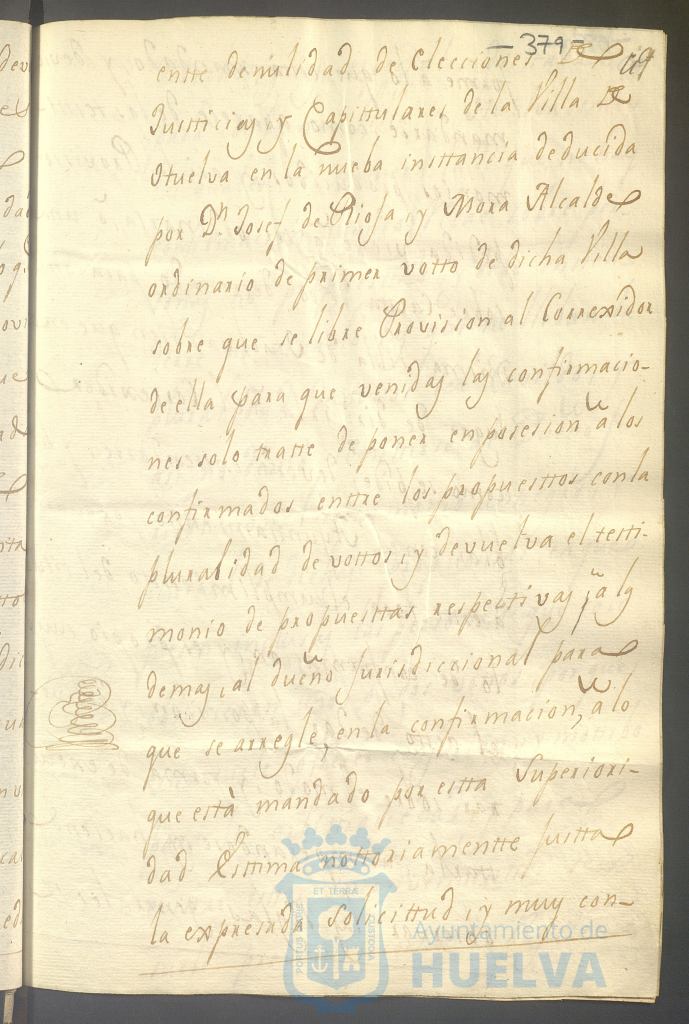 - 379 -
entte denulidad de elecciones de
Justticias y Capittulares de la Villa de
Huelva en la nueba insttancia deducida
por Dn. Josef de Riosa, y Mora Alcalde
ordinario de primer votto de dicha Villa
sobre que se libre Provision al Correxidor
de ella para que venidas las confirmacio-
nes solo tratte de poner en posesion à los
confirmados enttre los propuesttos con la
pluralidad de vottos, y devuelva el testi-
monio de propuesttas respectivas, à los
demas, al dueño Jurisdiccional para
que se arregle, en la confirmacion, à lo
que està mandado por estta Superiori-
dad Esttima nottoriamentte justta
la expresada solicittud, y muy con-
PORTUS MARIS
ET TERRÆ
CUSTODIA
Ayuntamiento de
HUELVA